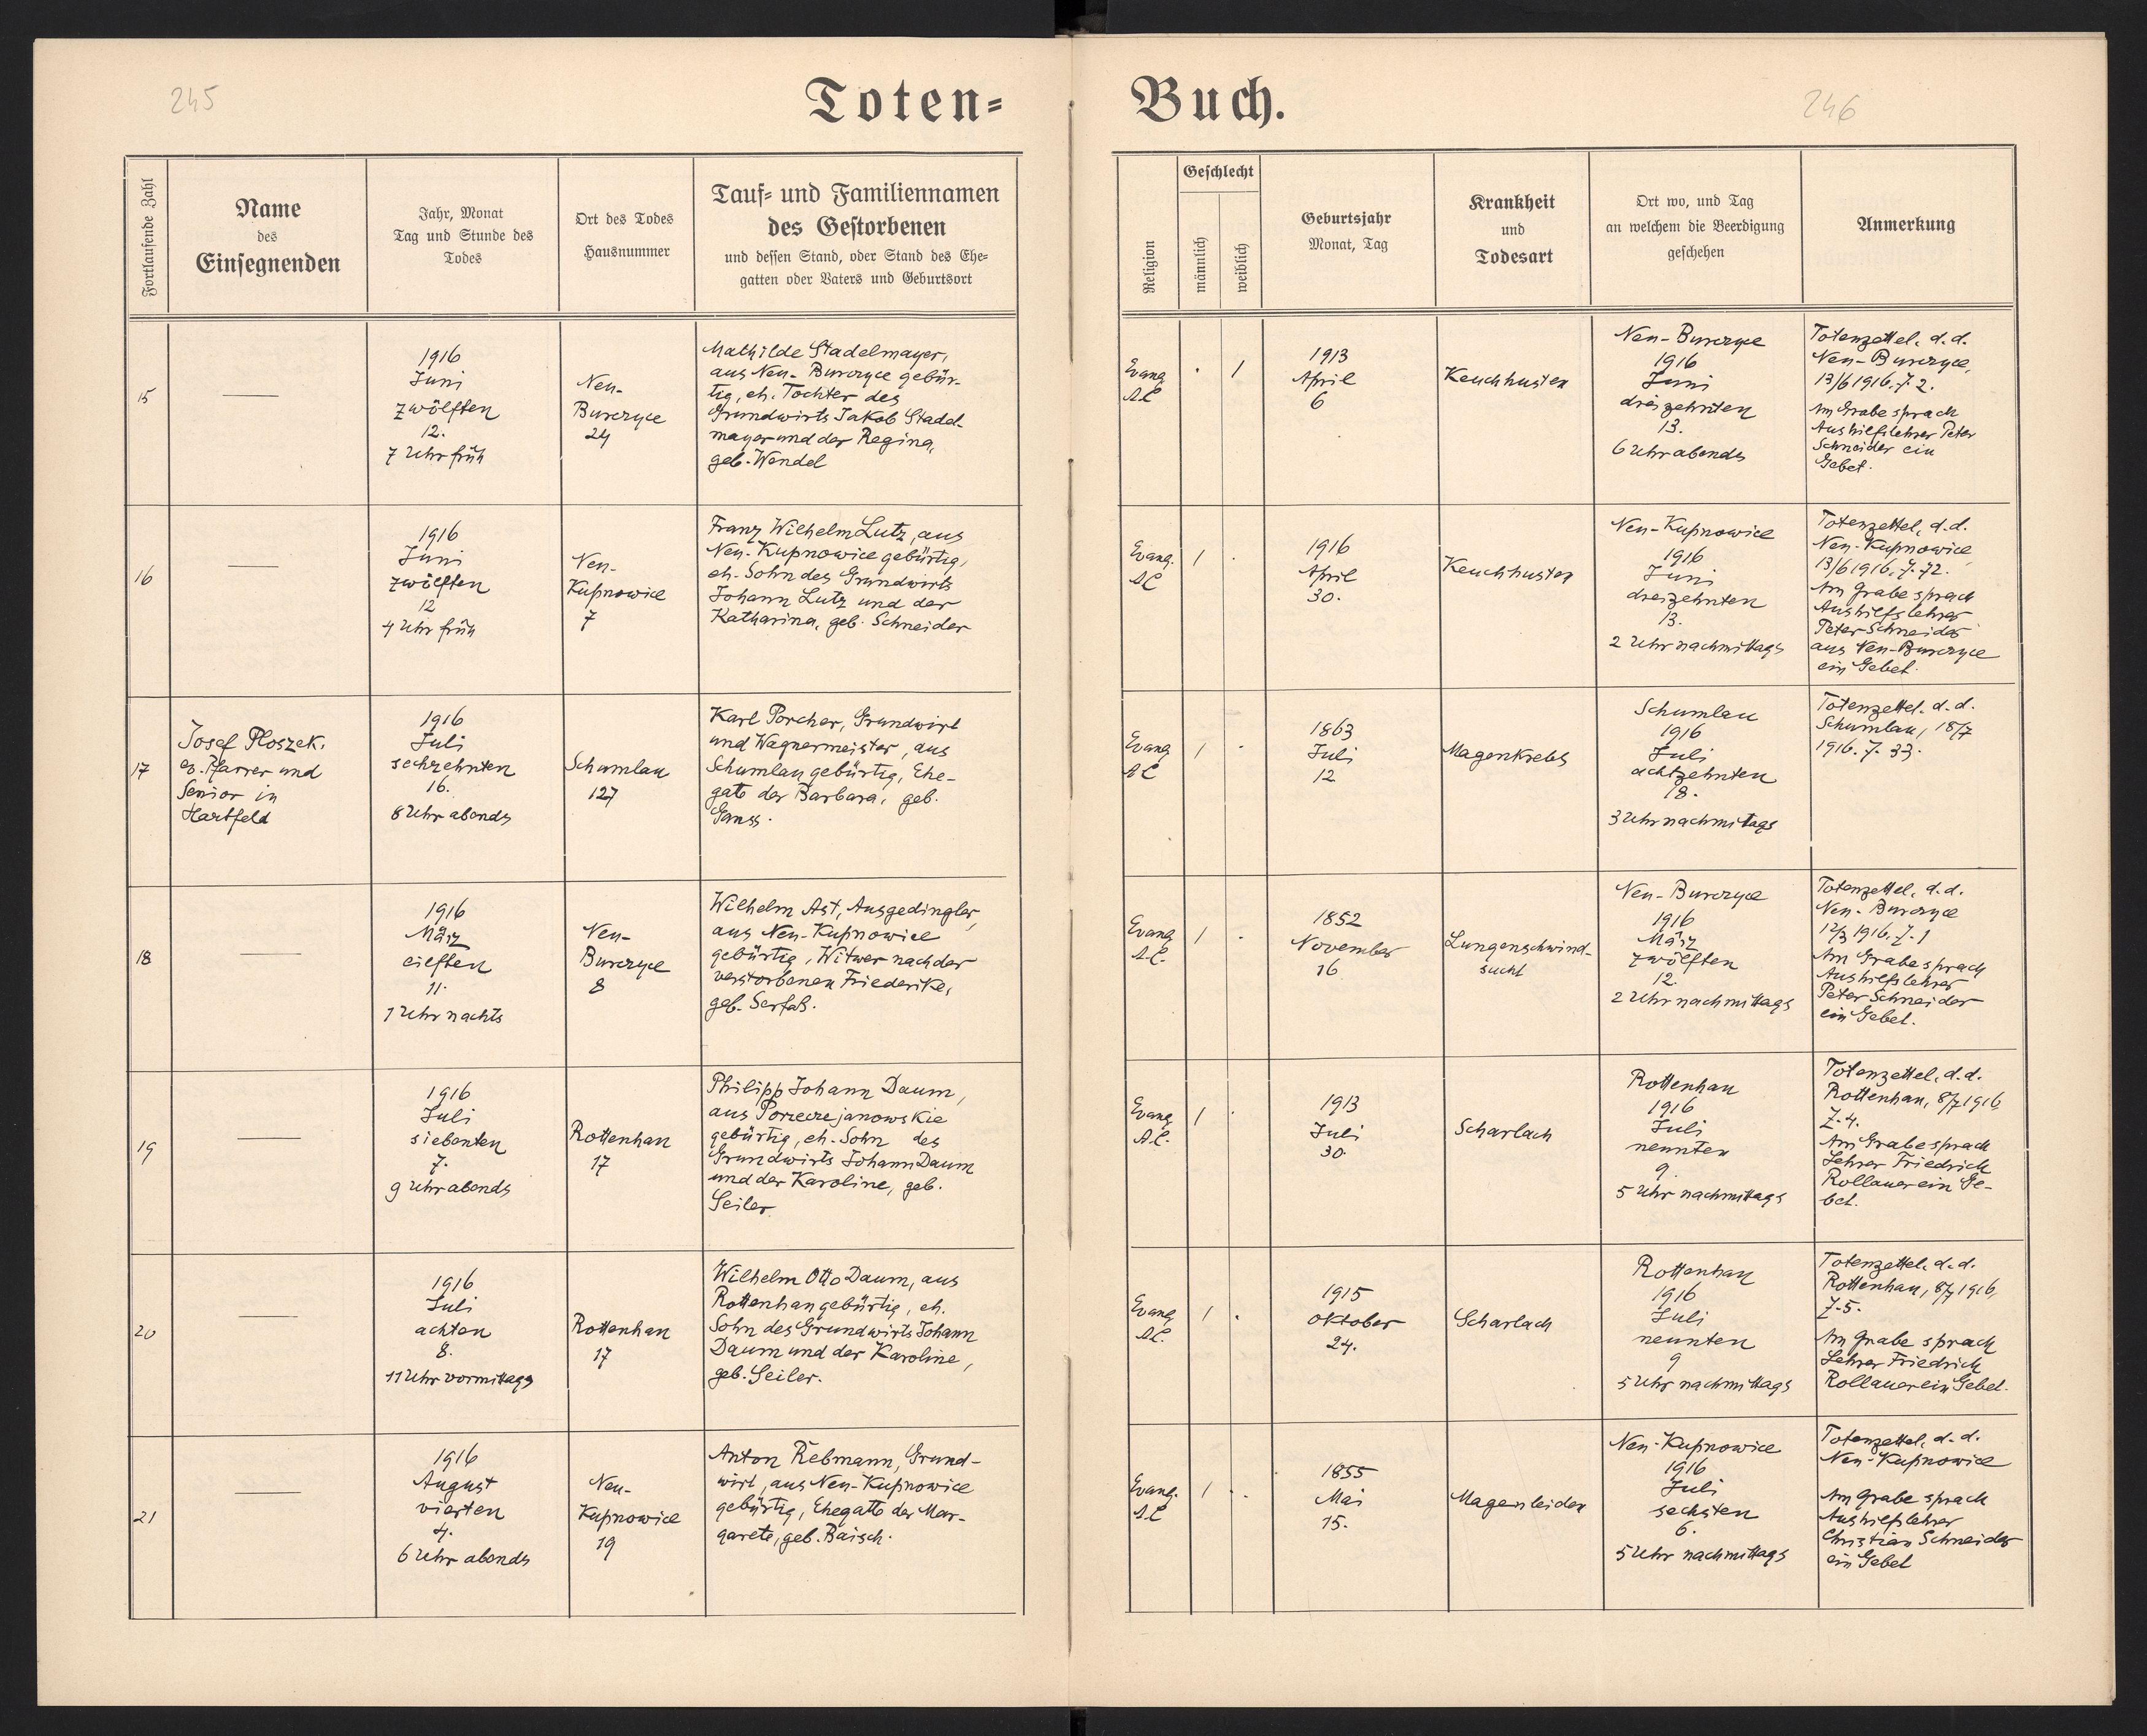 245
Toten=
Buch.
246
Fortlaufende Zahl
Name
des
Einsegnenden
Jahr, Monat
Tag und Stunde des
Todes
Ort des Todes
Hausnummer
Tauf= und Familiennamen
des Gestorbenen
und dessen Stand, oder Stand des Ehe=
gatten oder Vaters und Geburtsort
Religion
Geschlecht
männlich
weiblich
Geburtsjahr
Monat, Tag
Krankheit
und
Todesart
Ort wo, und Tag
an welchem die Beerdigung
geschehen
Anmerkung
15
1916
Juni
zwölften
12.
7 Uhr früh
Neu-
Burczyce
24
Mathilde Stadelmayer,
aus Neu-Burczyce gebür-
tig, eh. Tochter des
Grundwirts Jakob Stadel-
mayer und der Regina,
geb. Wendel
Evang.
A.C.
1
1913
April
6
Keuchhusten
Neu-Burczyce
1916
Juni
dreizehnten
13.
6 Uhr abends
Totenzettel, d.d.
Neu-Burczyce,
13/6 1916. Z. 2.
Am Grabe sprach
Aushilfslehrer Peter
Schneider ein
Gebet.
16
1916
Juni
zwölften
12
4 Uhr früh
Neu-
Kupnowice
7
Franz Wilhelm Lutz, aus
Neu-Kupnowice gebürtig,
eh. Sohn des Grundwirts
Johann Lutz und der
Katharina, geb. Schneider
Evang.
A.C.
1
1916
April
30.
Keuchhusten
Neu-Kupnowice
1916
Juni
dreizehnten
13.
2 Uhr nachmittags
Totenzettel, d.d.
Neu-Kupnowice
13/6 1916. Z. 72.
Am Grabe sprach
Aushilfslehrer
Peter Schneider
aus Neu-Burczyce
ein Gebet.
17
Josef Ploszek,
ev. Pfarrer und
Senior in
Hartfeld
1916
Juli
sechzehnten
16.
8 Uhr abends
Schumlau
127
Karl Porcher, Grundwirt
und Wagnermeister, aus
Schumlau gebürtig, Ehe-
gate der Barbara, geb.
Ganss.
Evang.
A.C.
1
1863
Juli
12
Magenkrebs
Schumlau
1916
Juli
achtzehnten
18.
3 Uhr nachmitags
Totenzettel. d.d.
Schumlau, 18/7
1916. Z. 33.
18
1916
März
eilften
11.
1 Uhr nachts
Neu-
Burczyce
8
Wilhelm Ast, Ausgedingler,
aus Neu-Kupnowice
gebürtig, Witwer nach der
verstorbenen Friederike,
geb. Serfas.
Evang.
A.C.
1
1852
November
16
Lungenschwind-
sucht
Neu-Burczyce
1916
März
zwölften
12.
2 Uhr nachmittags
Totenzettel, d.d.
Neu-Burczyce
12/3 1916. Z. 1
Am Grabe sprach
Aushilfslehrer
Peter Schneider
ein Gebet.
19
1916
Juli
siebenten
7.
9 Uhr abends
Rottenhan
17
Philipp Johann Daum,
aus Porzecze janowskie
gebürtig, eh. Sohn des
Grundwirts Johann Daum
und der Karoline, geb.
Seiler
Evang.
A.C.
1
1913
Juli
30.
Scharlach
Rottenhan
1916
Juli
neunten
9.
5 Uhr nachmittags
Totenzettel, d.d.
Rottenhan, 8/7 1916,
Z. 4.
Am Grabe sprach
Lehrer Friedrich
Rollauer ein Ge-
bet.
20
1916
Juli
achten
8.
11 Uhr vormittags
Rottenhan
17
Wilhelm Otto Daum, aus
Rottenhan gebürtig, eh.
Sohn des Grundwirts Johann
Daum und der Karoline,
geb. Seiler.
Evang.
A.C.
1
1915
Oktober
24.
Scharlach
Rottenhan
1916
Juli
neunten
9
5 Uhr nachmittags
Totenzettel, d.d.
Rottenhan, 8/7 1916,
Z. 5.
Am Grabe sprach
Lehrer Friedrich
Rollauer ein Gebet.
21
1916
August
vierten
4.
6 Uhr abends
Neu-
Kupnowice
19
Anton Rebmann, Grund-
wirt, aus Neu-Kupnowice
gebürtig, Ehegatte der Mar-
garete, geb. Baisch.
Evang.
A.C.
1
1855
Mai
15.
Magenleiden
Neu-Kupnowice
1916
Juli
sechsten
6.
5 Uhr nachmittags
Totenzettel, d.d.
Neu-Kupnowice
Am Grabe sprach
Aushilfslehrer
Christian Schneider
ein Gebet